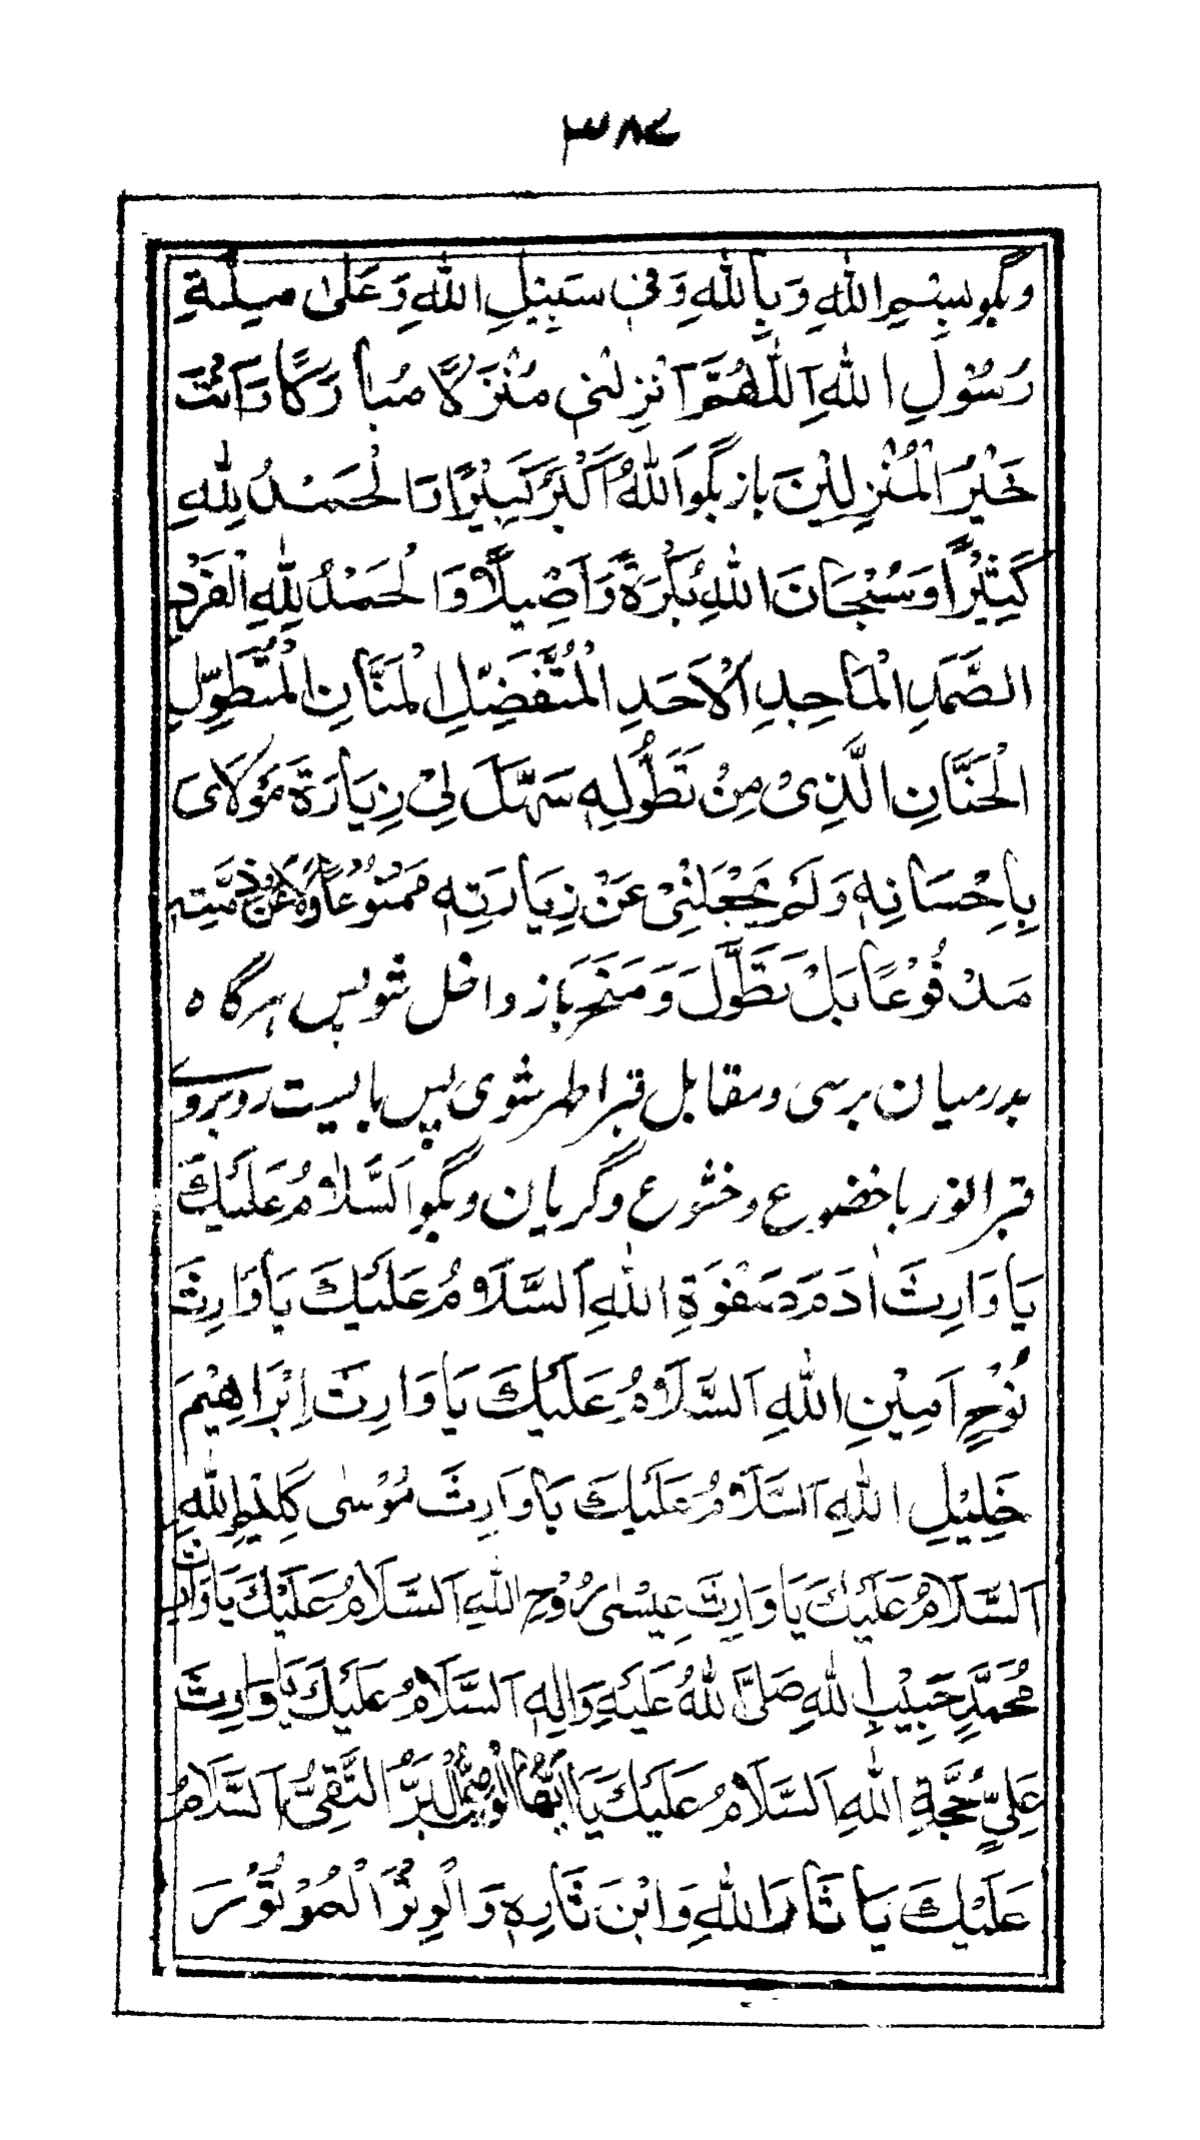 ۳۸۴
وبگو بِسْمِ اللهِ وَبِاللهِ وَفِی سَبِیْلِ اللهِ وَعَلٰی مِلَّةِ
رَسُوْلِ اللهِ اَللّٰهُمَّ اَنْزِلْنِی مُنْزَلًا مُبَارَکًا وَاَنْتَ
خَیْرُ الْمُنْزِلِیْنَ باز بگو اَللّٰهُ اَکْبَرُ کَبِیْرًا وَالْحَمْدُ لِلّٰهِ
کَثِیْرًا وَسُبْحَانَ اللهِ بُکْرَةً وَاَصِیْلًا وَالْحَمْدُ لِلّٰهِ الْفَرْدِ
الصَّمَدِ الْمَاجِدِ الْاَحَدِ الْمُتَفَضِّلِ الْمَنَّانِ الْمُتَطَوِّلِ
الْحَنَّانِ الَّذِیْ مِنْ تَطَوُّلِهٖ سَهَّلَ لِیْ زِیَارَةَ مَوْلَایَ
بِاِحْسَانِهٖ وَلَمْ یَجْعَلْنِیْ عَنْ زِیَارَتِهٖ مَمْنُوْعًا وَلَا عَنْ ذِمَّتِهٖ
مَدْفُوْعًا بَلْ تَطَوَّلَ وَمَنَحَ باز داخل شو پس هرگاه
بدرمیان برسی ومقابل قبر اطهر شوی پس بایست روبروے
قبر انور باخضوع وخشوع وگریان وبگو اَلسَّلَامُ عَلَیْكَ
یَا وَارِثَ اٰدَمَ صَفْوَةِ اللهِ اَلسَّلَامُ عَلَیْكَ یَا وَارِثَ
نُوْحٍ اَمِیْنِ اللهِ اَلسَّلَامُ عَلَیْكَ یَا وَارِثَ اِبْرَاهِیْمَ
خَلِیْلِ اللهِ اَلسَّلَامُ عَلَیْكَ یَا وَارِثَ مُوْسٰی کَلِیْمِ اللهِ
اَلسَّلَامُ عَلَیْكَ یَا وَارِثَ عِیْسٰی رُوْحِ اللهِ اَلسَّلَامُ عَلَیْكَ یَا وَارِثَ
مُحَمَّدٍ حَبِیْبِ اللهِ صَلَّی اللهُ عَلَیْهِ وَاٰلِهٖ اَلسَّلَامُ عَلَیْكَ یَا وَارِثَ
عَلِیٍّ حُجَّةِ اللهِ اَلسَّلَامُ عَلَیْكَ یَا اَیُّهَا الْوَصِیُّ الْبَرُّ التَّقِیُّ اَلسَّلَامُ
عَلَیْكَ یَا ثَارَ اللهِ وَابْنَ ثَارِهٖ وَالْوِتْرَ الْمَوْتُوْرَ